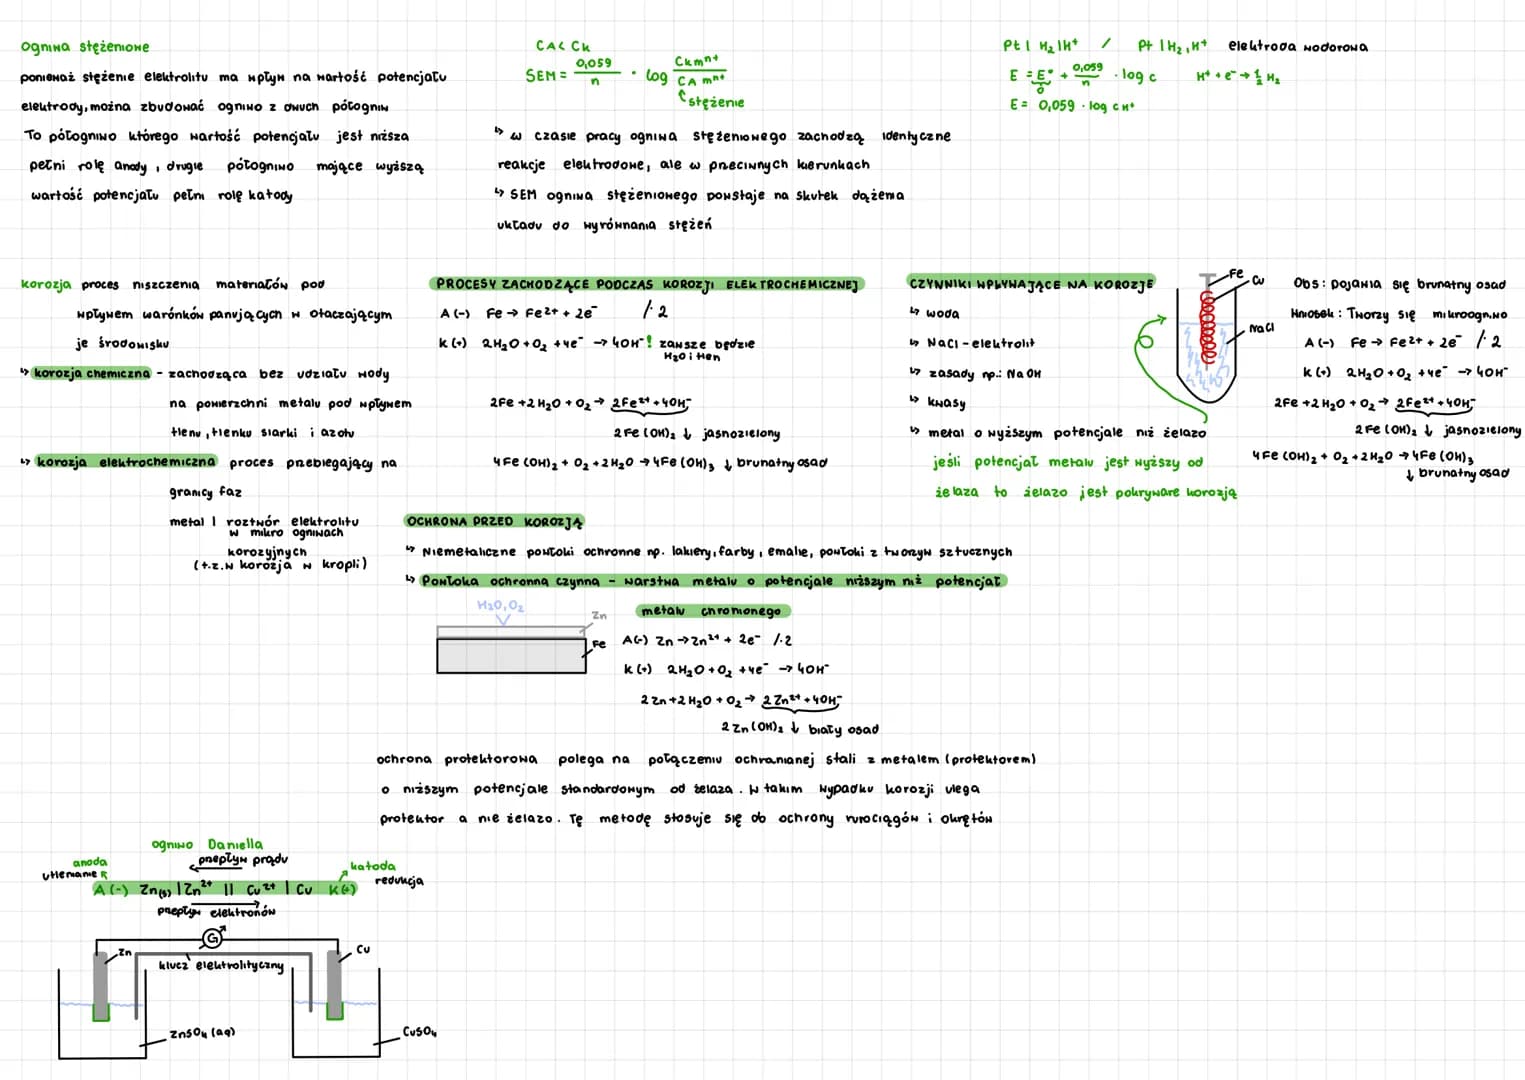 Ogniwa stężeniowe
ponieważ stężenie elektrolitu ma wpływ na wartość potencjału
elektrody, można zbudować ogniwo z dwuch półogniw
To półogniwo którego wartość potencjału jest niższa
pełni rolę anody, drugie półogniwo mające wyższą
wartość potencjału pełni rolę katody
CA < CK
SEM = 0,059/n · log CK mⁿ⁺/CA mⁿ⁺
stężenie
↳ w czasie pracy ogniwa stężeniowego zachodzą identyczne
reakcje elektrodowe, ale w przeciwnych kierunkach
↳ SEM ogniwa stężeniowego powstaje na skutek dążenia
układu do wyrównania stężeń
Pt | H₂ | H⁺ / Pt | H₂, H⁺ elektroda wodorowa
E = E° + 0,059/n · log c H⁺ + e⁻ → ½ H₂
0
E = 0,059 · log cH⁺
korozja proces niszczenia materiałów pod
wpływem warónków panujących w otaczającym
je środowisku
↳ korozja chemiczna - zachodząca bez udziału wody
na powierzchni metalu pod wpływem
tlenu, tlenku siarki i azotu
↳ korozja elektrochemiczna proces przebiegający na
granicy faz
metal | roztwór elektrolitu
w mikro ogniwach
korozyjnych
(t.z.w korozja w kropli)
PROCESY ZACHODZĄCE PODCZAS KOROZJI ELEKTROCHEMICZNEJ
A(-) Fe → Fe²⁺ + 2e⁻ /·2
K(+) 2H₂O + O₂ + 4e⁻ → 4OH⁻ ! zawsze będzie
H₂O i tlen
2Fe + 2H₂O + O₂ → 2Fe²⁺ + 4OH⁻
2Fe(OH)₂ ↓ jasnozielony
4Fe(OH)₂ + O₂ + 2H₂O → 4Fe(OH)₃ ↓ brunatny osad
CZYNNIKI WPŁYWAJĄCE NA KOROZJE
↳ woda
↳ NaCl - elektrolit
↳ zasady np.: NaOH
↳ kwasy
↳ metal o wyższym potencjale niż żelazo
jeśli potencjał metalu jest wyższy od
żelaza to żelazo jest pokrywane korozją
Fe
Cu
NaCl
Obs: pojawia się brunatny osad
Wniosek: Tworzy się mikroogniwo
A(-) Fe → Fe²⁺ + 2e⁻ /·2
K(+) 2H₂O + O₂ + 4e⁻ → 4OH⁻
2Fe + 2H₂O + O₂ → 2Fe²⁺ + 4OH⁻
2Fe(OH)₂ ↓ jasnozielony
4Fe(OH)₂ + O₂ + 2H₂O → 4Fe(OH)₃
↓ brunatny osad
OCHRONA PRZED KOROZJĄ
↳ Niemetaliczne powłoki ochronne np. lakiery, farby, emalie, powłoki z tworzyw sztucznych
↳ Powłoka ochronną czynną - warstwa metalu o potencjale niższym niż potencjał
metalu chronionego
H₂O, O₂
Zn
Fe
A(-) Zn → Zn²⁺ + 2e⁻ /·2
K(+) 2H₂O + O₂ + 4e⁻ → 4OH⁻
2Zn + 2H₂O + O₂ → 2Zn²⁺ + 4OH⁻
2Zn(OH)₂ ↓ biały osad
ochrona protektorowa polega na połączeniu ochranianej stali z metalem (protektorem)
o niższym potencjale standardowym od żelaza. W takim wypadku korozji ulega
protektor a nie żelazo. Tę metodę stosuje się do ochrony rurociągów i okrętów
ogniwo Daniella
przepływ prądu
anoda
utlenianie
katoda
redukcja
A(-) Zn(s) | Zn²⁺ || Cu²⁺ | Cu K(+)
przepływ elektronów
G
Zn
Cu
klucz elektrolityczny
ZnSO₄ (aq)
CuSO₄